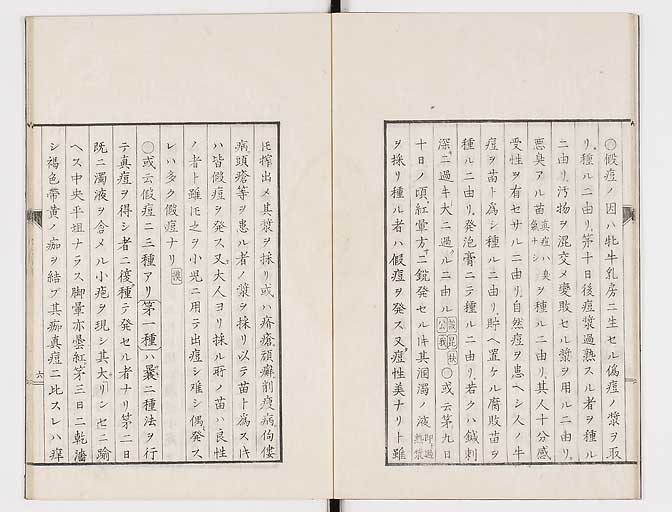 〇假痘ノ因ハ牝牛乳房ニ生セル偽痘ノ漿ヲ取
リ種ルニ由リ第十日後痘漿過熟スル者ヲ種ル
ニ由リ汚物ヲ混交メ変敗セル漿ヲ用ルニ由リ
悪臭アル苗真痘ハ臭氣ナシヲ種ルニ由リ其人十分感
受性ヲ有セサルニ由リ自然痘ヲ患ヘシ人ノ牛
痘ヲ苗ト為シ種ルニ由リ貯ヘ置ケル腐敗苗ヲ
種ルニ由リ発泡膏ニテ種ルニ由リ若クハ鍼刺
深ニ過キ大ニ過ルニ由ル〇或云第九日
十日ノ頃紅暈方ニ鋭発セル時其涸濁ノ液即過熟漿
ヲ採リ種ル者ハ假痘ヲ発ス又痘性美ナリト雖
𪜈搾出メ其漿ヲ採リ或ハ疥瘡頑癬削瘦病佝僂
病頭瘡等ヲ患ル者ノ漿ヲ採リ以テ苗ト為ス時
ハ皆假痘ヲ発ス又大人ヨリ採ル所ノ苗ハ良性
ノ者ト雖𪜈之ヲ小児ニ用テ出痘シ难シ偶発ス
レハ多ク假痘ナリ
〇或云假痘ニ三種アリ第一種ハ曩ニ種法ヲ行
テ真痘ヲ得シ者ニ復種テ発セル者ナリ第二日
既ニ濁液ヲ含メル小疱ヲ現シ其大リンセニ踰
ヘス中央平坦ナラス脚暈亦曇紅第三日ニ乾瀋
シ褐色帯黄ノ痂ヲ結フ其痂真痘ニ比スレハ痒
六